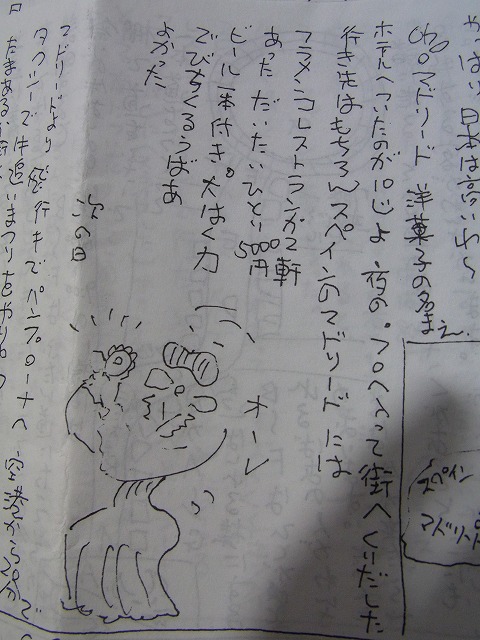 やっぱり日本は高いわ〜
マドリード 洋菓子の名まえ
ホテルへついたのが10じよ 夜の。フロへ入って街へくりだした
行き先はもちろんスペインのマドリードには
フラメンコレストランが2軒
あった だいたいひとり5000円
ビール一本付き。大はく力
でびちくるうばあ
よかった
オーレ
次の日
マドリードより飛行キでパンプローナへ 空港から20分で
タクシーで 牛追いまつりをやり
スペイン
マドリード